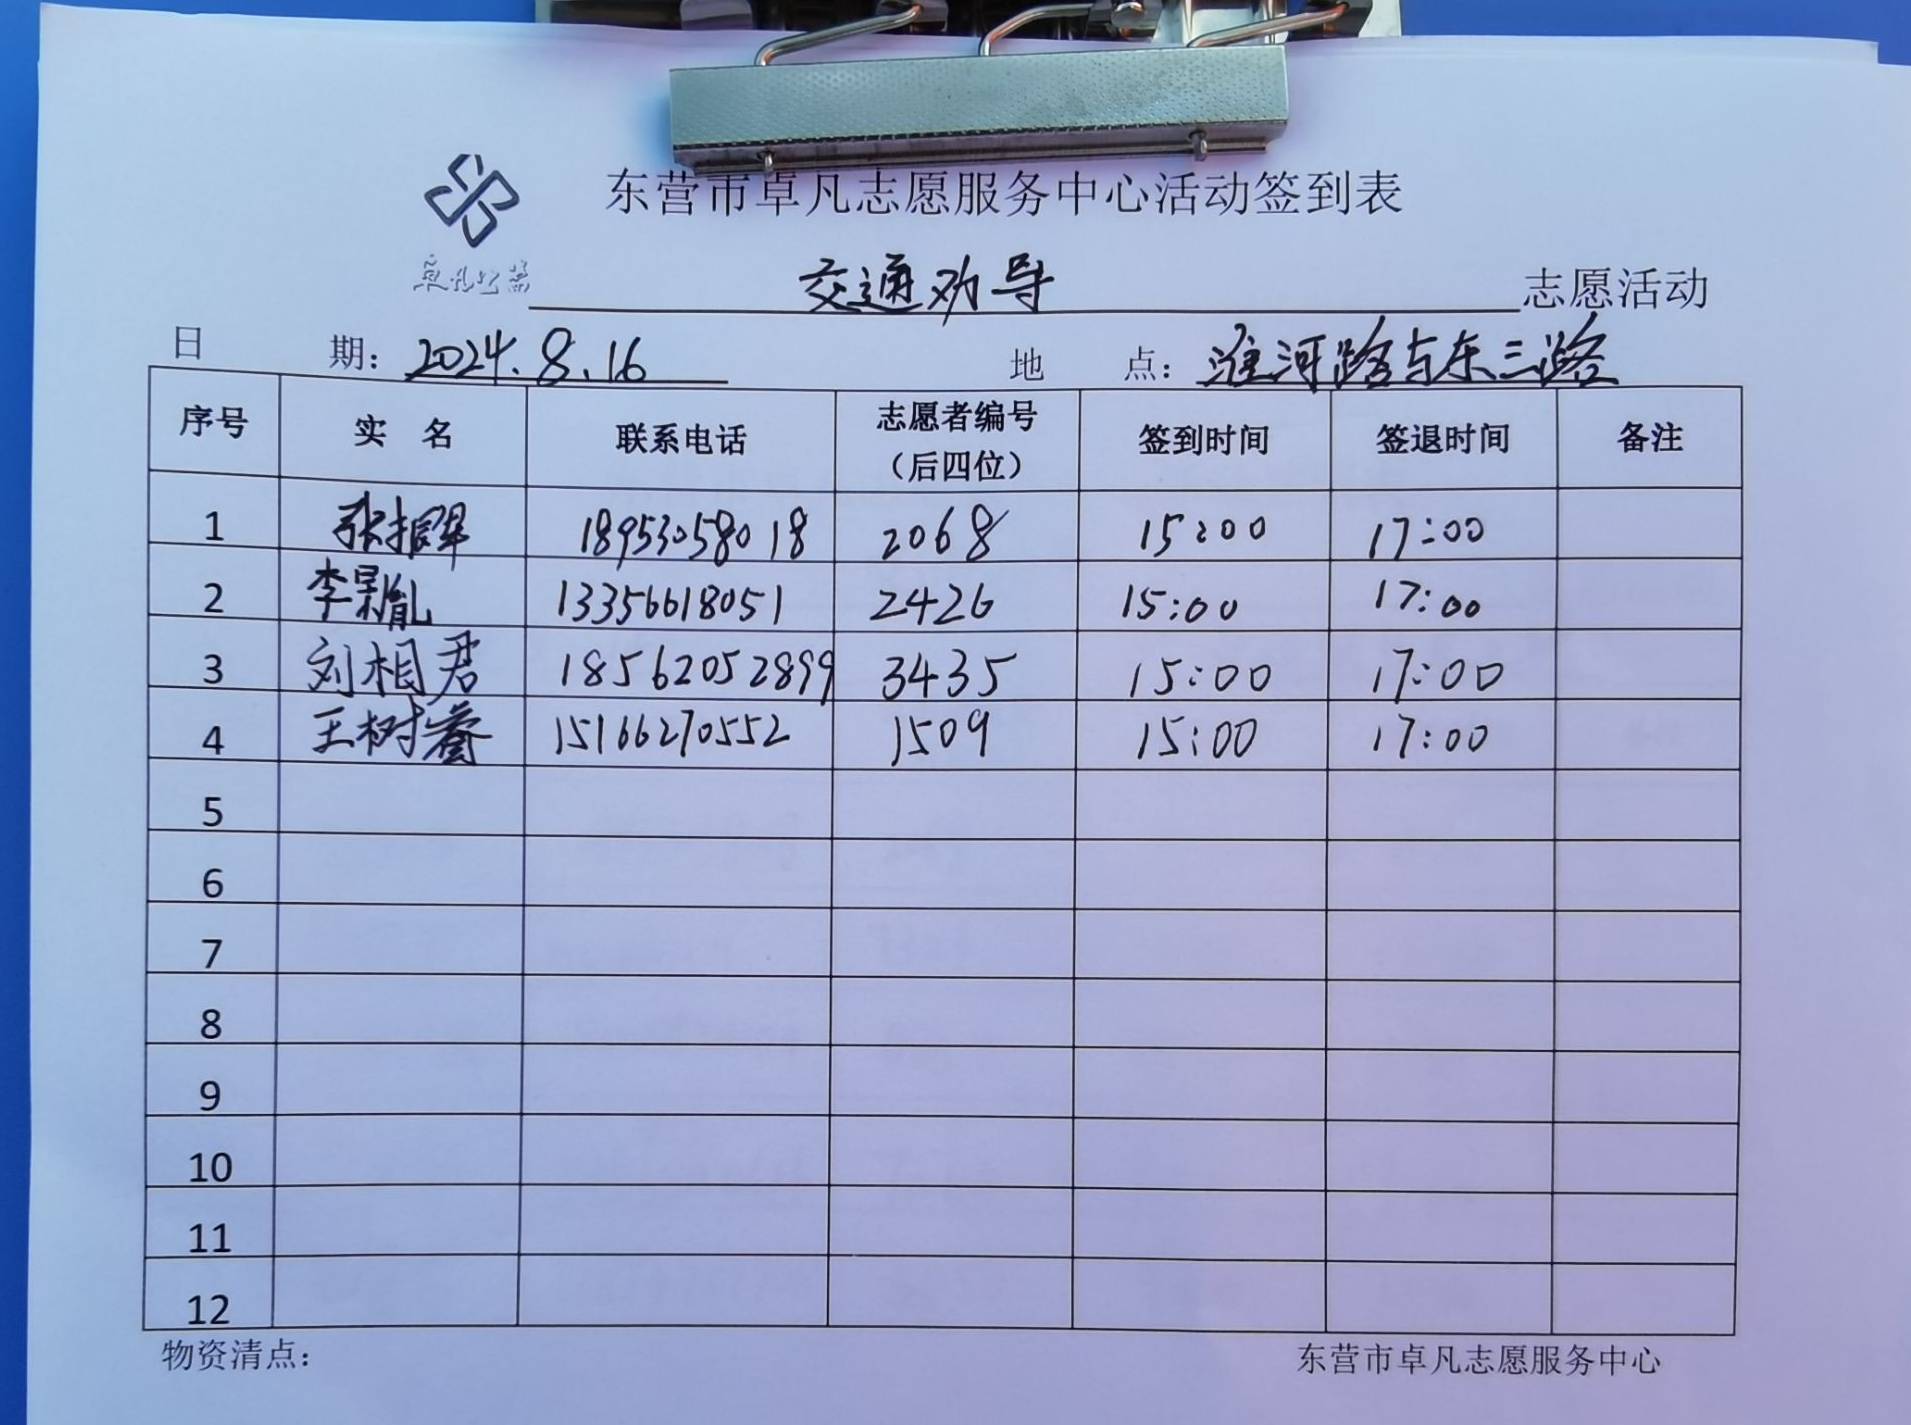 东营市卓凡志愿服务中心活动签到表
卓凡公益
交通劝导 志愿活动
日 期：2024.8.16 地 点：淮河路与东三路
序号 实 名 联系电话 志愿者编号（后四位） 签到时间 签退时间 备注
1 张振军 18953058018 2068 15:00 17:00
2 李 胤 13356618051 2426 15:00 17:00
3 刘相君 18562052899 3435 15:00 17:00
4 王树 15166270552 1509 15:00 17:00
5
6
7
8
9
10
11
12
物资清点： 东营市卓凡志愿服务中心